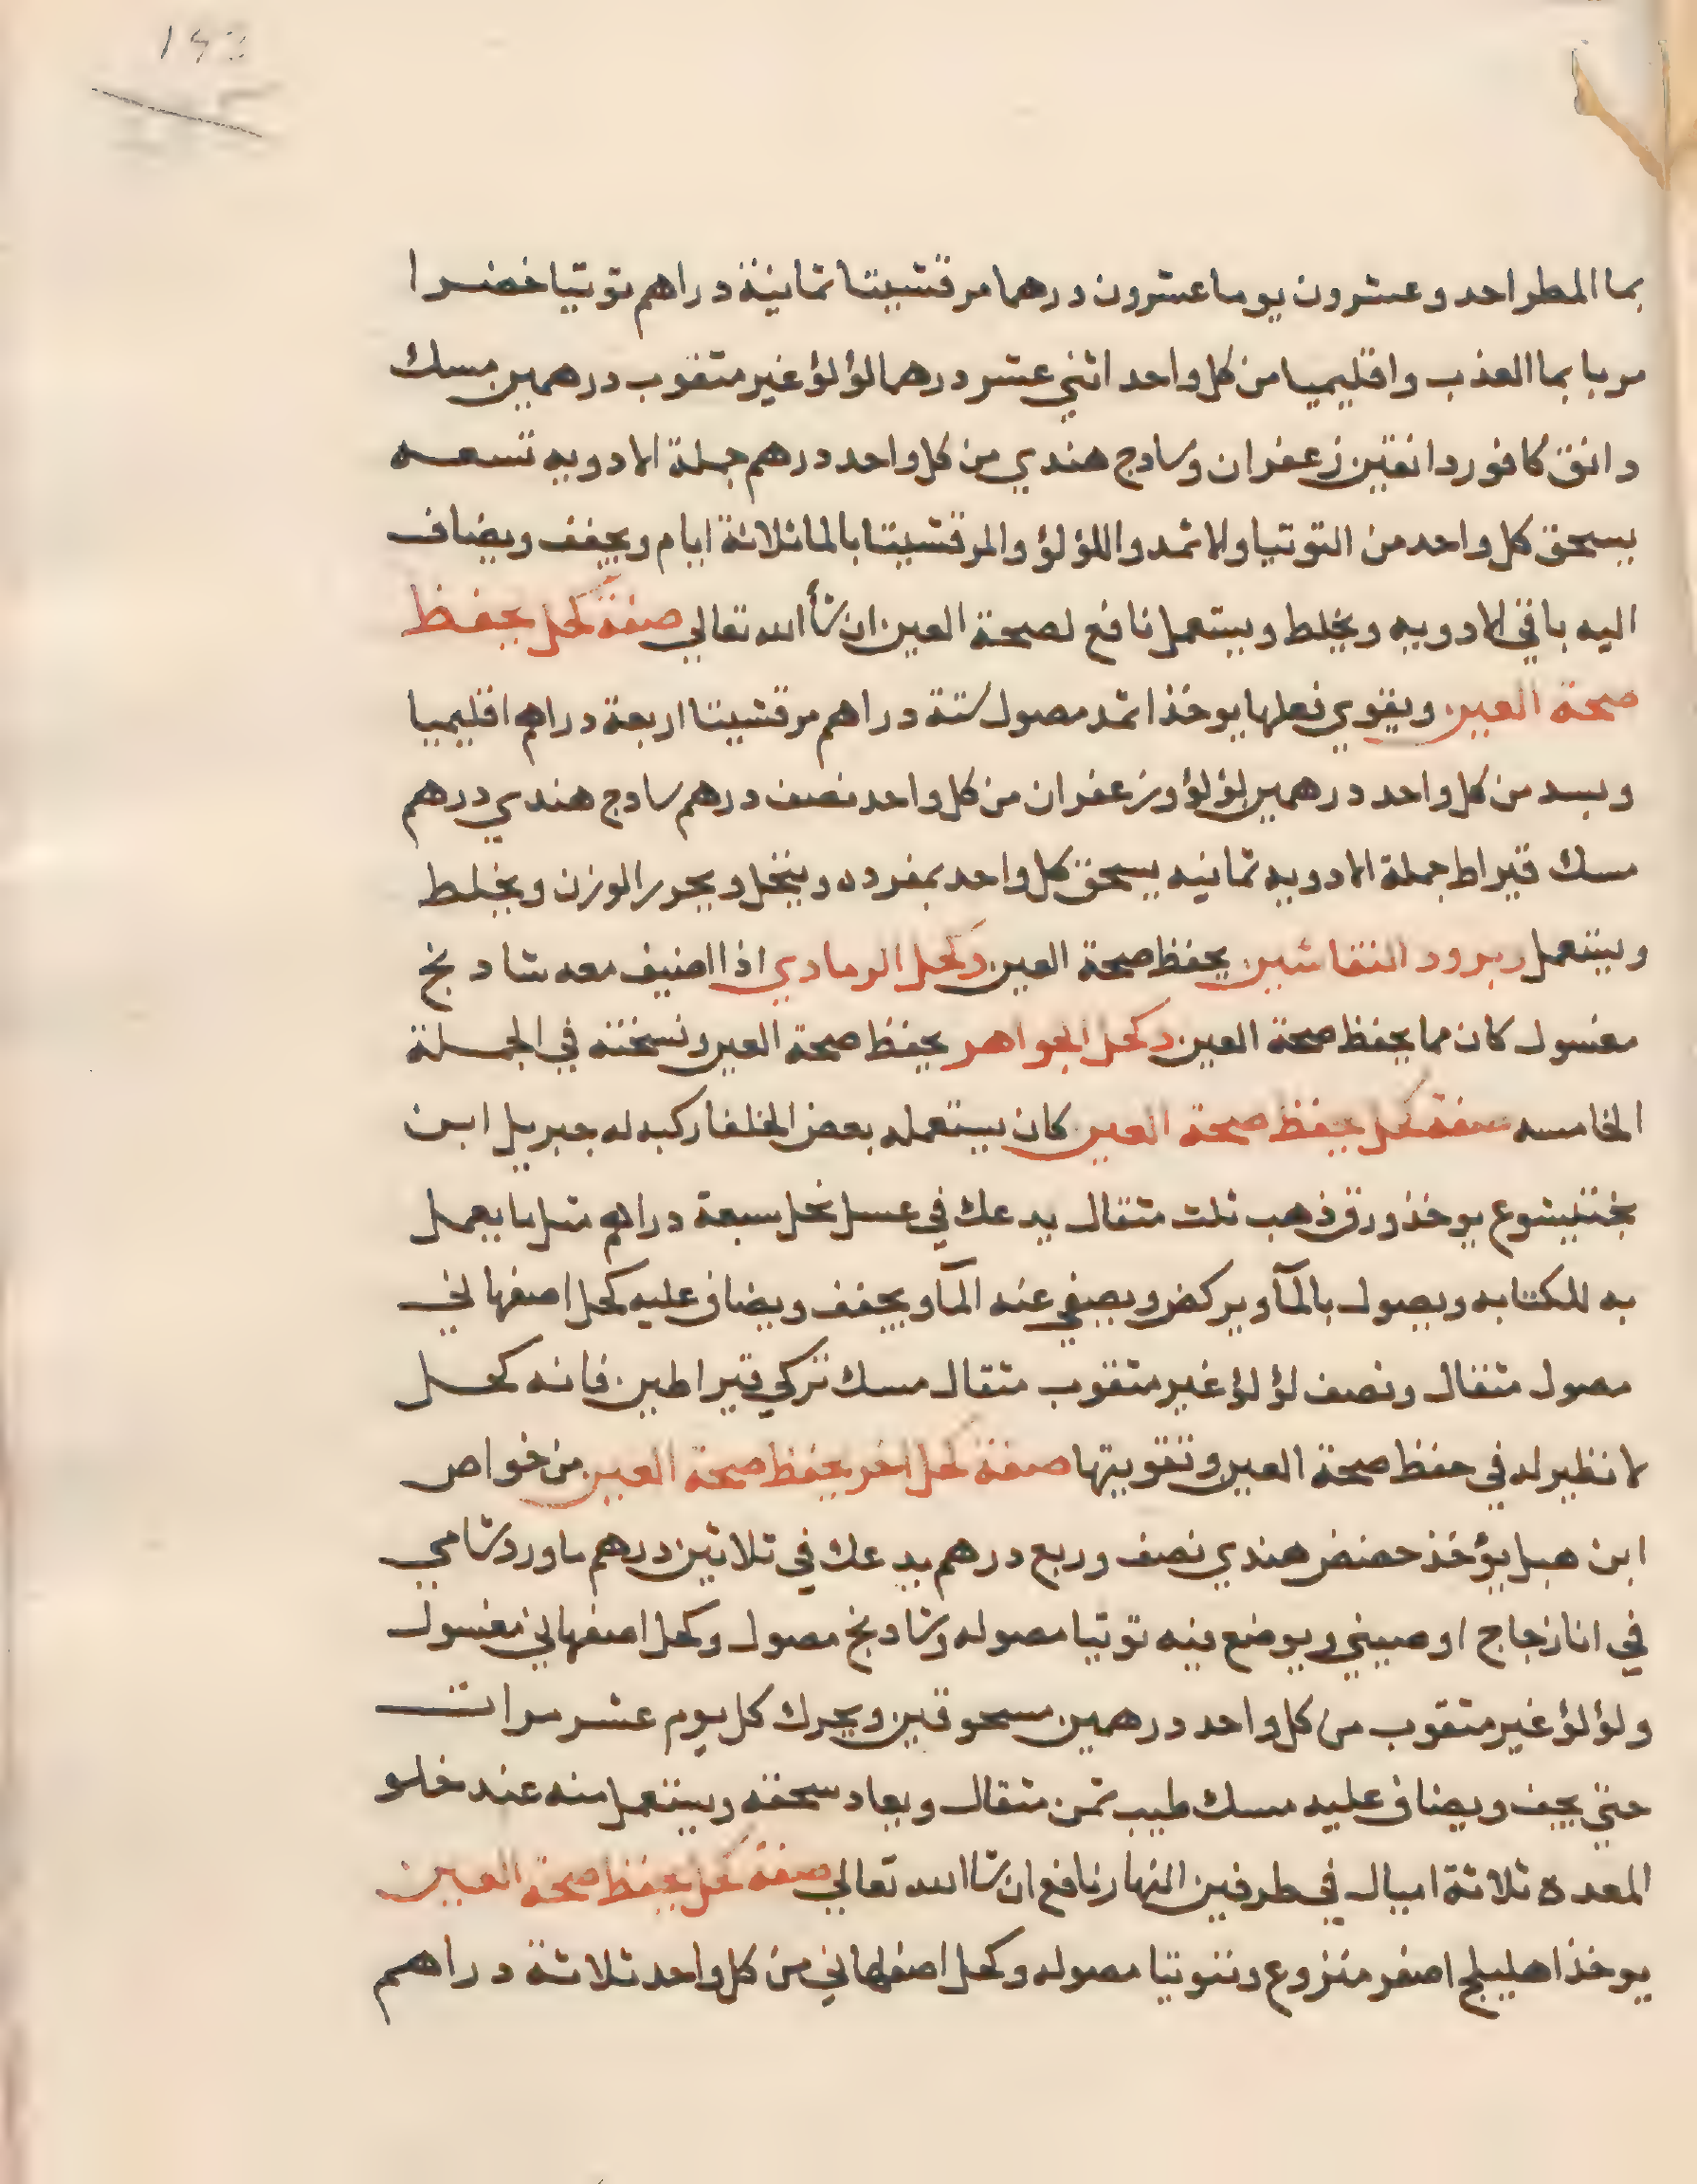 بما المطر احد وعشرون يوما عشرون درهما مرقشيتا ثمانية دراهم توتيا خضرا
مربا بما العذب واقليميا من كل واحد اثني عشر درهما لؤلؤ غير مثقوب درهمين مسك
دانق كافور دانقين زعفران وسادج هندي من كل واحد درهم جملة الادويه تسعه
يسحق كل واحد من التوتيا والاثمد واللؤلؤ والمرقشيتا بالما ثلاثة ايام ويجفف ويضاف
اليه باقي الادويه ويخلط ويستعمل نافع لصحة العين ان شأ الله تعالي صفة كحل يحفظ
صحة العين ويقوي فعلها يوخذ اثمد مصول ستة دراهم مرقشيتا اربعة دراهم اقليميا
وبسد من كل واحد درهمين لؤلؤ وزعفران من كل واحد نصف درهم سادج هندي درهم
مسك قيراط جملة الادويه ثمانيه يسحق كل واحد بمفرده وينخل ويحرر الوزن ويخلط
ويستعمل وبرود النقاشين يحفظ صحة العين وكحل الرمادي اذا اضيف معه شادنج
مغسول كان مما يحفظ صحة العين وكحل الجواهر يحفظ صحة العين ونسخته في الجملة
الخامسه صفة كحل يحفظ صحة العين كان يستعمله بعض الخلفا ركبه له جبريل ابن
بختيشوع يوخذ ورق ذهب ثلث مثقال يدعك في عسل نحل سبعة دراهم مثل ما يعمل
به للكتابه ويصول بالمآ ويركض ويصفي عنه المآ ويجفف ويضاف عليه كحل اصفهاني
مصول مثقال ونصف لؤلؤ غير مثقوب مثقال مسك تركي قيراطين فانه كحل
لا نظير له في حفظ صحة العين وتقويتها صفة كحل اخر يحفظ صحة العين من خواص
ابن هبل يؤخذ حضض هندي نصف وربع درهم يدعك في ثلاثين درهم ماورد شامي
في انا زجاج او صيني ويوضع فيه توتيا مصوله وشادنج مصول وكحل اصفهاني مغسول
ولؤلؤ غير مثقوب من كل واحد درهمين مسحوقين ويحرك كل يوم عشر مرات
حتي يجف ويضاف عليه مسك طيب ثمن مثقال ويعاد سحقه ويستعمل منه عند خلو
المعده ثلاثة اميال في طرفين النهار نافع ان شا الله تعالي صفة كحل يحفظ صحة العين
يوخذ اهليلج اصفر منزوع وتوتيا مصوله وكحل اصفهاني من كل واحد ثلاثة دراهم